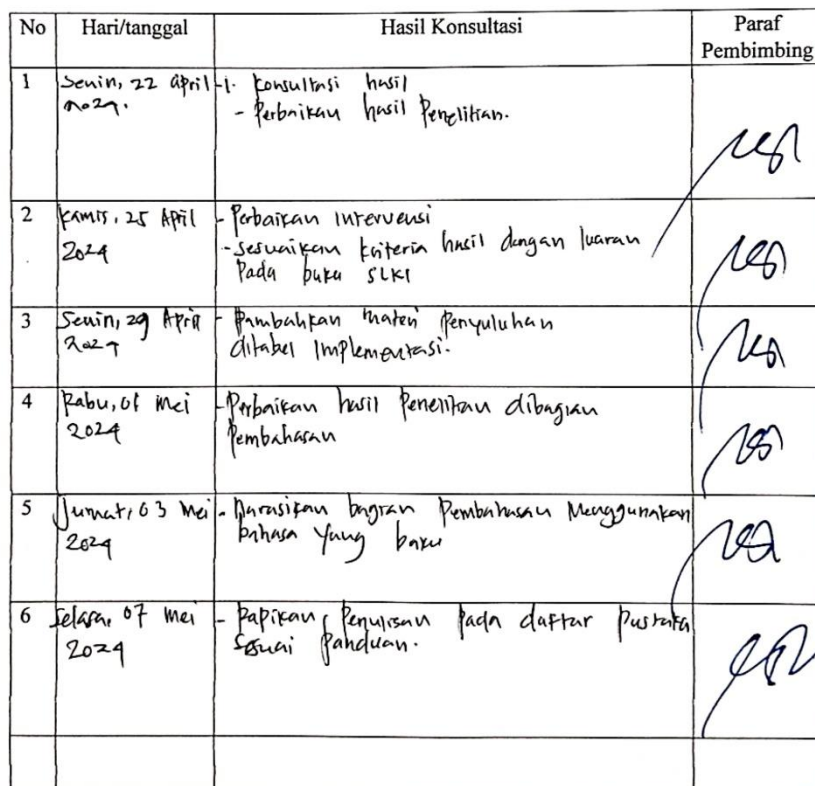 No Hari/tanggal Hasil Konsultasi Paraf
Pembimbing
1 Senin, 22 April 2024. -1. Konsultasi hasil
- Perbaikan hasil Penelitian.
2 Kamis, 25 April 2024 - Perbaikan Intervensi
- Sesuaikan kriteria hasil dengan luaran
Pada buku SLKI
3 Senin, 29 April 2024 - Tambahkan materi Penyuluhan
ditabel Implementasi.
4 Rabu, 01 Mei 2024 - Perbaikan hasil Penelitian dibagian
Pembahasan
5 Jumat, 03 Mei 2024 - Narasikan bagian Pembahasan Menggunakan
bahasa yang baku
6 Selasa, 07 Mei 2024 - Rapikan Penulisan Pada daftar Pustaka
Sesuai Panduan.